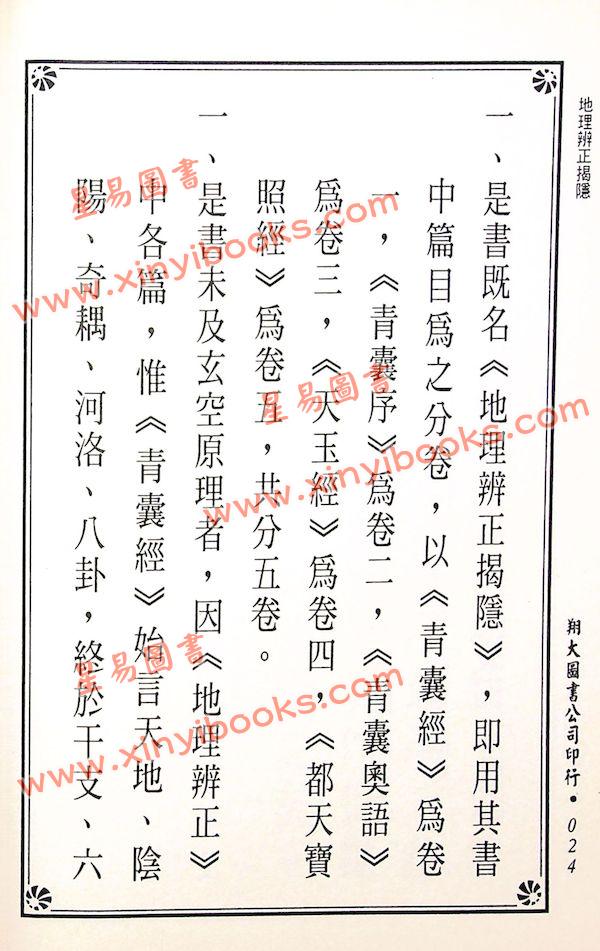 地理辨正揭隱
一、是書既名《地理辨正揭隱》，即用其書
中篇目爲之分卷，以《青囊經》爲卷
一，《青囊序》爲卷二，《青囊奧語》
爲卷三，《天玉經》爲卷四，《都天寶
照經》爲卷五，共分五卷。
一、是書未及玄空原理者，因《地理辨正》
中各篇，惟《青囊經》始言天地、陰
陽、奇耦、河洛、八卦，終於干支、六
翔大圖書公司印行•024
星易圖書
www.xinyibooks.com
星易圖書
www.xinyibooks.com
星易圖書
www.xinyibooks.com